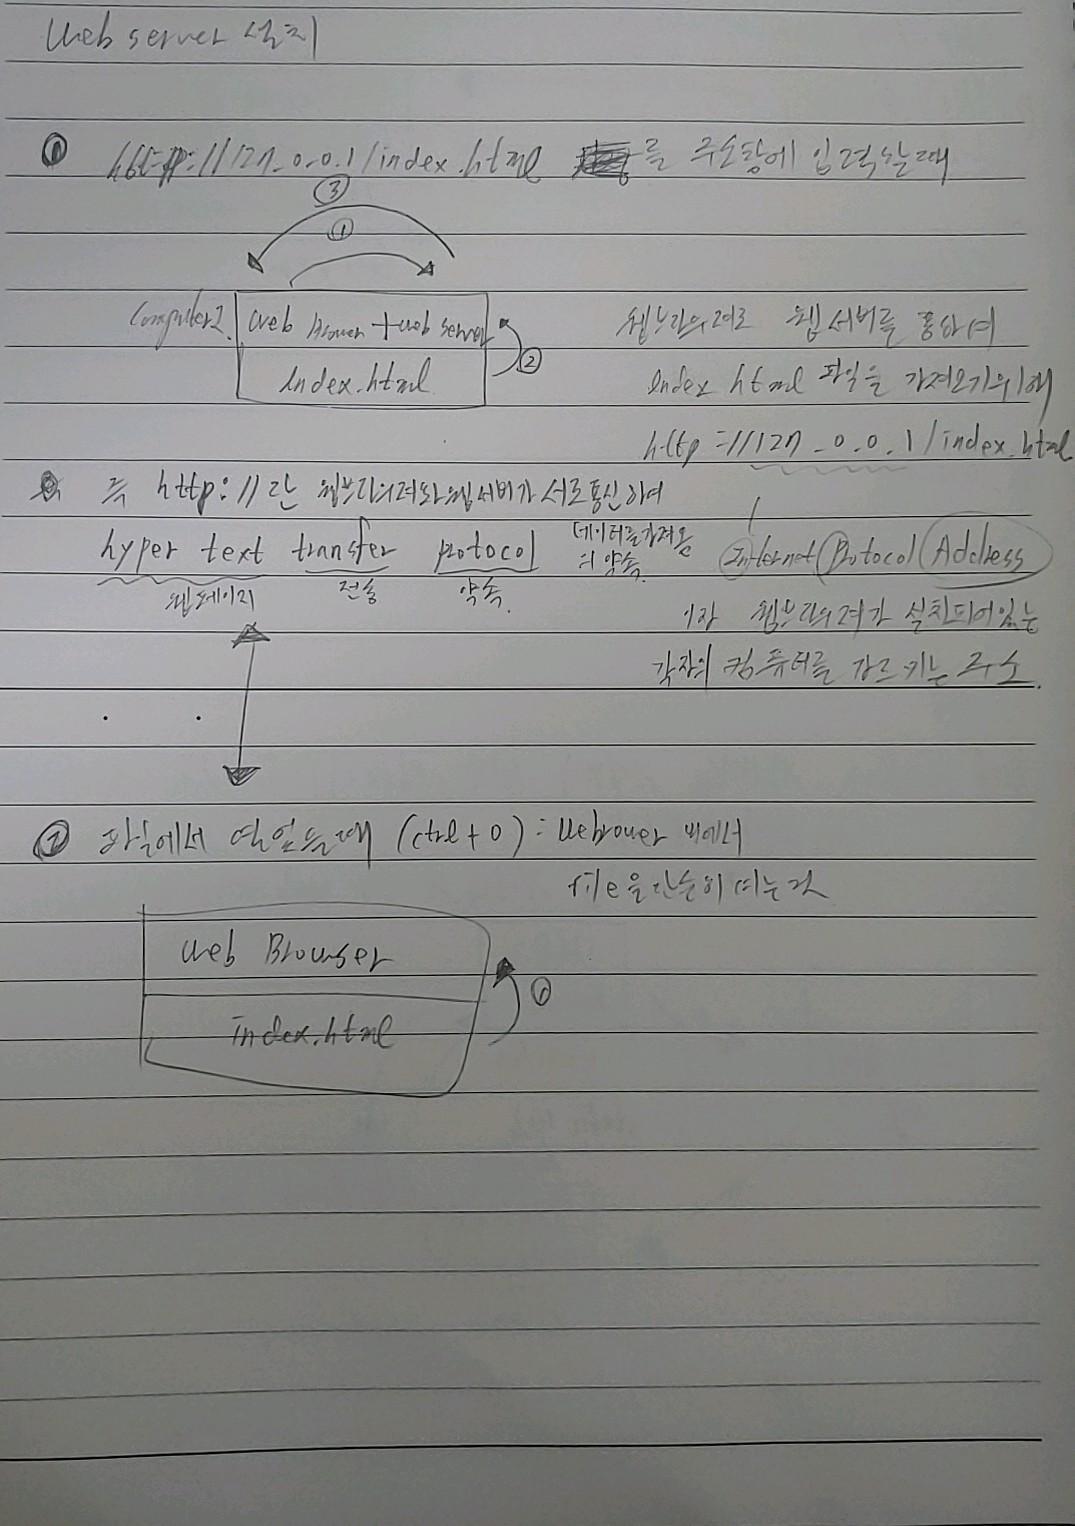 Web server 설치
① http://127.0.0.1/index.html 를 주소창에 입력할때
③
①
Computer1. Web Brower + web server
②
index.html
웹브라우저로 웹서버를 통하여
index html 파일을 가져오기위해
http://127.0.0.1/index.html
즉 http://란 웹브라우저와 웹서버가 서로통신하여
데이터를가져옴
의 약속.
hyper text transfer protocol
웹페이지 전송 약속.
Internet Protocol Address
웹브라우져가 설치되어있는
각자의 컴퓨터를 가르키는 주소.
② 파일에서 열었을때 (ctrl + O) : Webrower 내에서
file을 단순히 여는것
Web Browser
①
index.html